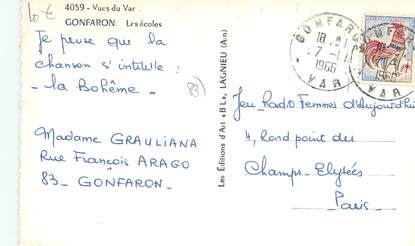 10 €
4059 - Vues du Var
GONFARON. Les écoles
Je pense que la
chanson s'intitule :
- la Bohême -
83
Madame GRAULIANA
Rue François ARAGO
83_ GONFARON_
Les Éditions d'Art "BL", LAGNIEU (Ain)
GONFARON
18 H
7 - 1
1966
VAR
GONFARON
1966
VAR
Jeu_Radio Femmes d'Aujourd'hui
4, Rond point des
Champs_Elysées
_Paris_